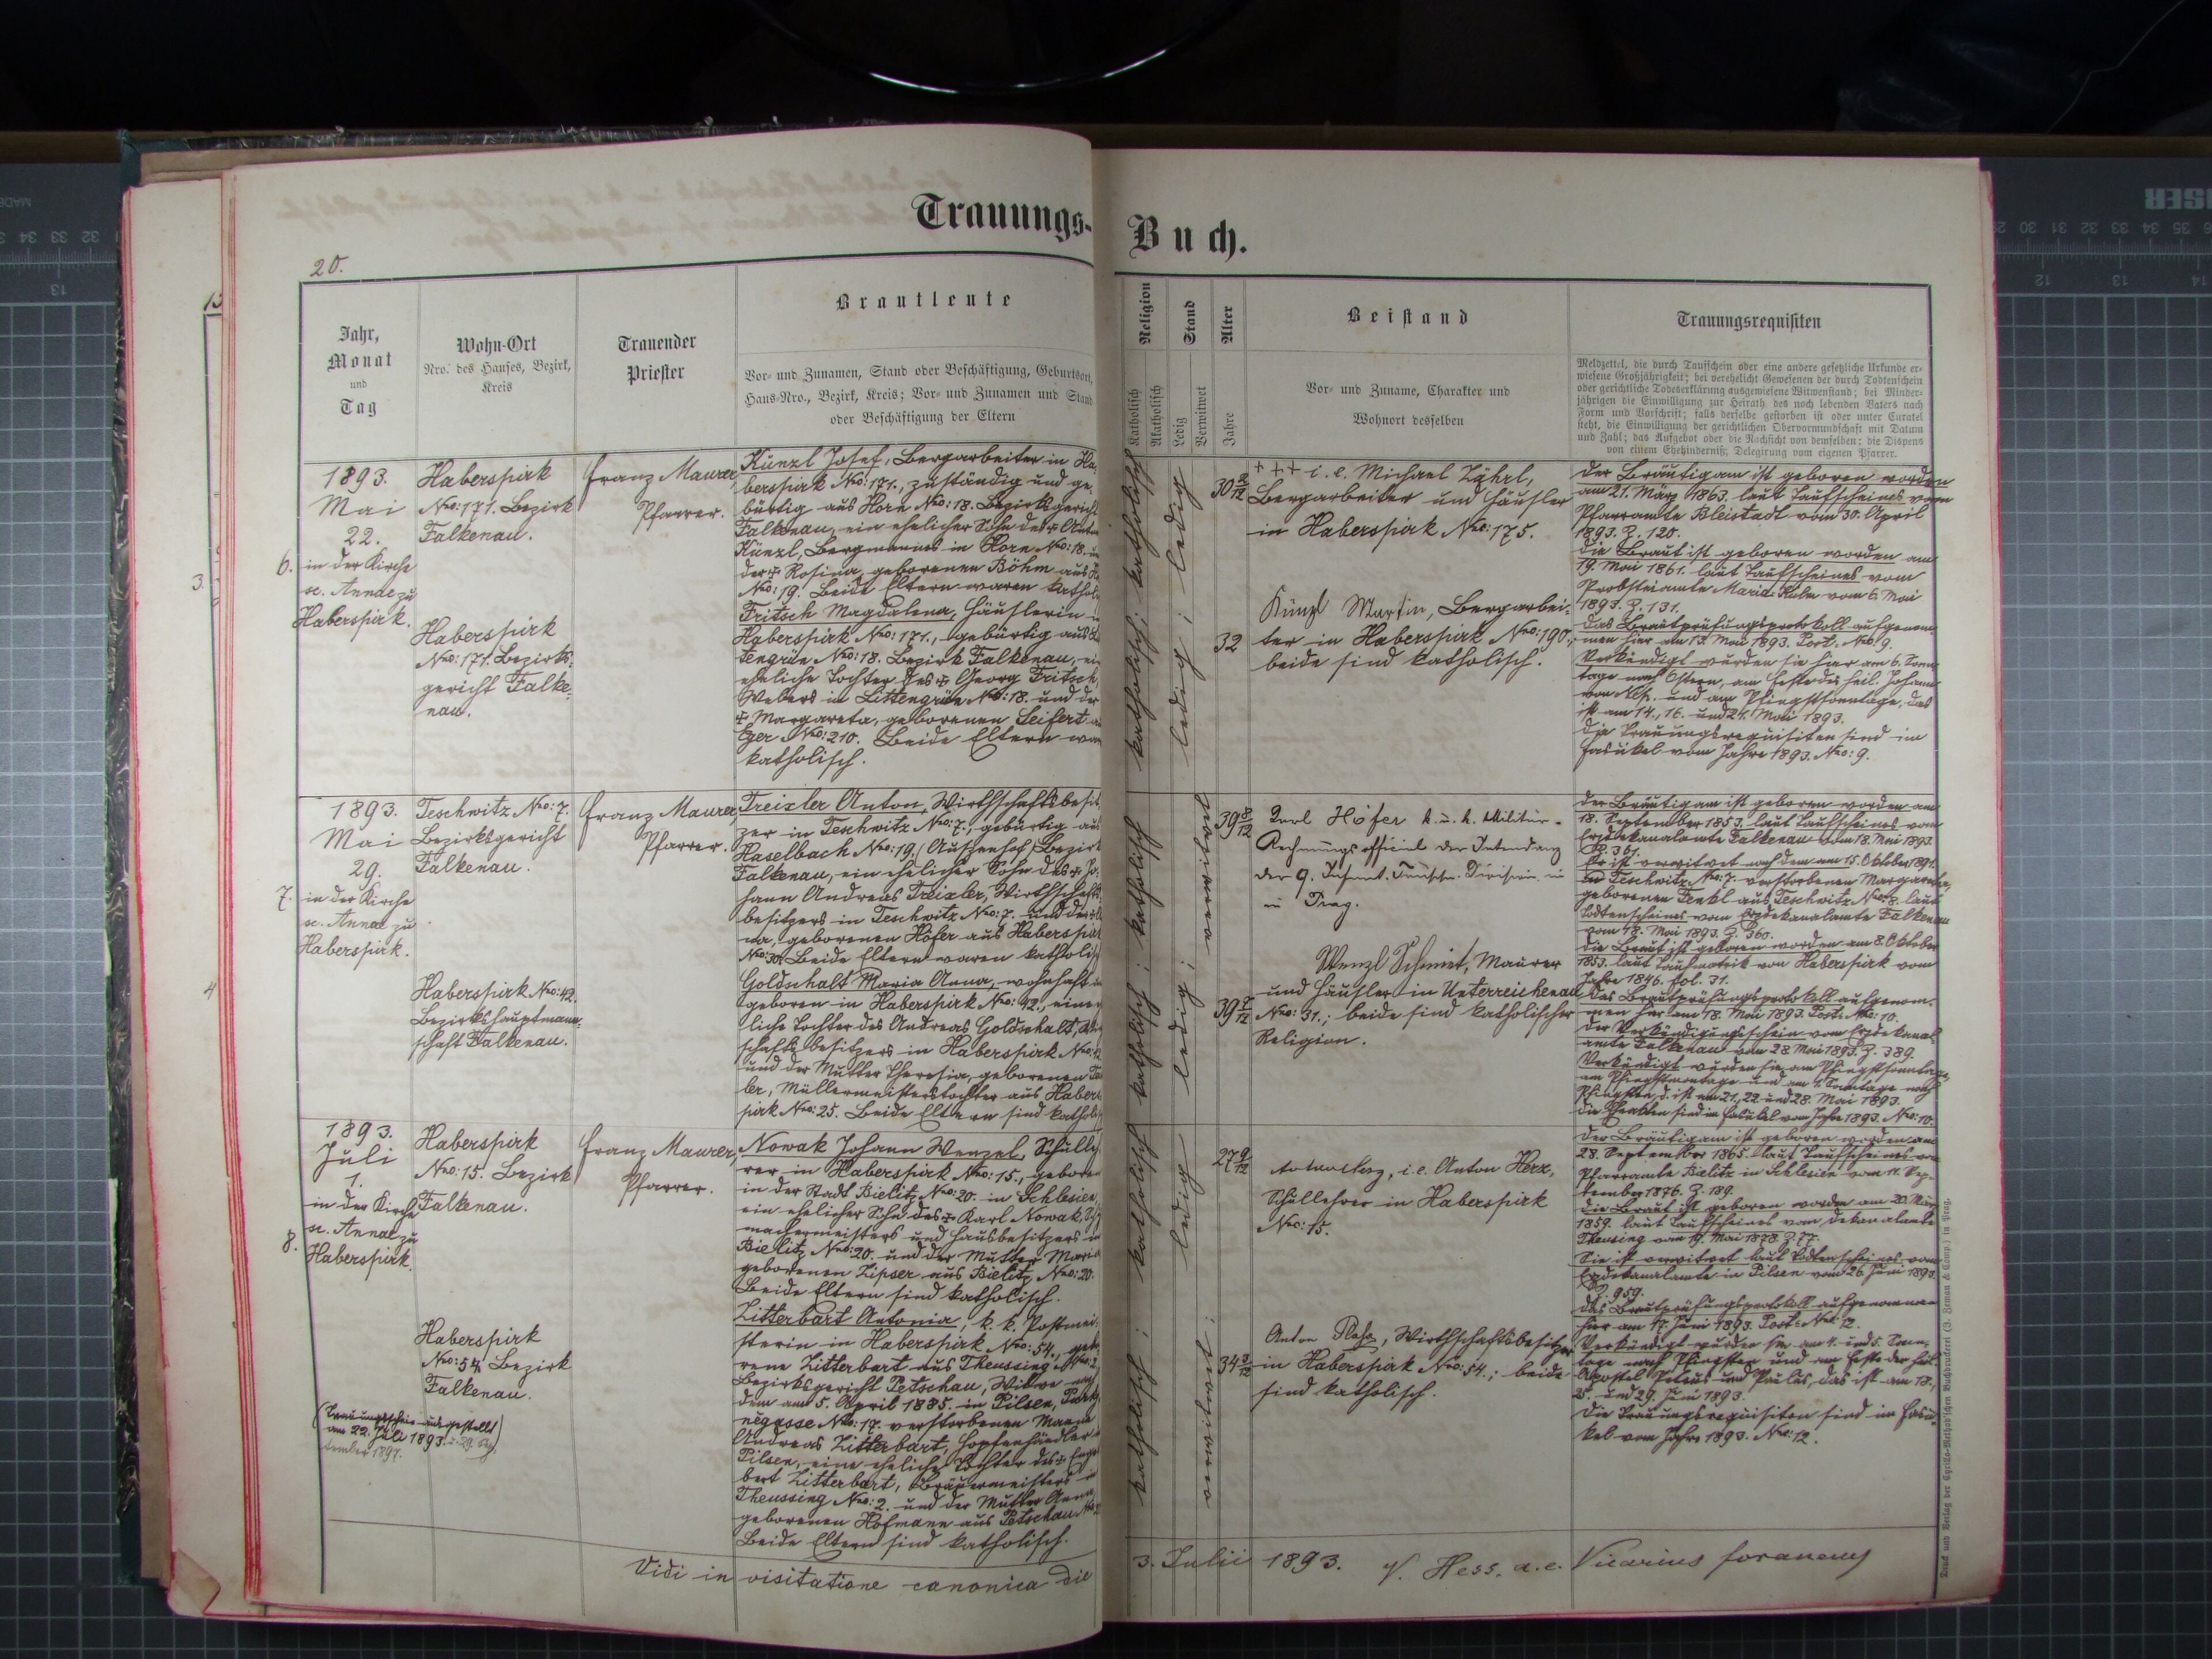 Trauungs-Buch.
20.
Jahr,
Monat
und
Tag
Wohn-Ort
Nro. des Hauses, Bezirk,
Kreis
Trauender
Priester
Brautleute
Vor- und Zunamen, Stand oder Beschäftigung, Geburtsort,
Haus-Nro., Bezirk, Kreis; Vor- und Zunamen und Stand
oder Beschäftigung der Eltern
Religion
Katholisch
Akatholisch
Stand
Ledig
Verwitwet
Alter
Jahre
Beistand
Vor- und Zuname, Charakter und
Wohnort desselben
Trauungsrequisiten
Meldzettel, die durch Taufschein oder eine andere gesetzliche Urkunde er-
wiesene Großjährigkeit; bei verehelicht Gewesenen der durch Todtenschein
oder gerichtliche Todeserklärung ausgewiesene Witwenstand; bei Minder-
jährigen die Einwilligung zur Heirath des noch lebenden Vaters nach
Form und Vorschrift; falls derselbe gestorben ist oder unter Curatel
steht, die Einwilligung der gerichtlichen Obervormundschaft mit Datum
und Zahl; das Aufgebot oder die Nachsicht von demselben; die Dispens
von einem Ehehinderniß; Delegirung vom eigenen Pfarrer.
6.
1893.
Mai
22.
in der Kirche
sc. Annae zu
Haberspirk.
Haberspirk
Nro: 171. Bezirk
Falkenau.
Haberspirk
Nro: 171. Bezirks-
gericht Falke-
nau.
Franz Maurer,
Pfarrer.
Künzl Josef, Bergarbeiter in Ha-
berspirk Nro: 171., zuständig und ge-
bürtig aus Horn Nro: 18. Bezirksgericht
Falkenau, ein ehelicher Sohn des † Anton
Künzl, Bergmannes in Horn Nro: 18.
der † Rosina, geborenen Böhm aus
Nro: 19. Beide Eltern waren kathol
Fritsch Magdalena, Häuslerin
Haberspirk Nro: 171., gebürtig aus
tengrün Nro: 18. Bezirk Falkenau, ei
eheliche Tochter des † Georg Fritsch,
Webers in Littengrün Nro: 18. und der
† Margareta, geborenen Seifert
Eger Nro: 210. Beide Eltern war
katholisch.
katholisch; katholisch
ledig; ledig
30 2/12
32
+++ i. e. Michael Zährl,
Bergarbeiter und Häusler
in Haberspirk Nro: 175.
Künzl Martin, Bergarbei-
ter in Haberspirk Nro: 190.;
beide sind katholisch.
Der Bräutigam ist geboren worden
am 21. März 1863. laut Taufscheines vom
Pfarramte Bleistadt vom 30. April
1893. Z. 120.
Die Braut ist geboren worden am
19. Mai 1861. laut Taufscheines vom
Probsteiamte Maria-Kulm vom 6. Mai
1893. Z. 131.
Das Brautprüfungsprotokoll aufgenom-
men hier am 13. Mai 1893. Post: Nro: 9.
Verkündigt wurden sie hier am 6. Sonn-
tage nach Ostern, am Feste des heil. Johann
von Nep. und am Pfingstsonntage, das
ist am 14., 16. und 21. Mai 1893.
Die Trauungsrequisiten sind im
Fasikel vom Jahre 1893. Nro: 9.
7.
1893.
Mai
29.
in der Kirche
sc. Annae zu
Haberspirk.
Teschwitz Nro: 7.
Bezirksgericht
Falkenau.
Haberspirk Nro: 42.
Bezirkshauptmann-
schaft Falkenau.
Franz Maurer,
Pfarrer.
Treixler Anton, Wirthschaftsbesit-
zer in Teschwitz Nro: 7., gebürtig aus
Haselbach Nro: 19. Bezirk
Falkenau, ein ehelicher Sohn des † Jo-
hann Andreas Treixler, Wirthschafts-
besitzers in Teschwitz Nro: 7. und der
geborenen Höfer aus Haberspirk
Nro: 30. Beide Eltern waren katholisch
Goldschalt Maria Anna, wohnhaft
geboren in Haberspirk Nro: 42., eine
liche Tochter des Andreas Goldschalt,
schaftsbesitzers in Haberspirk Nro:
und der Mutter Theresia, geborenen
ler, Müllermeisterstochter aus Haber-
spirk Nro: 25. Beide Eltern sind kathol
katholisch; katholisch
ledig; verwitwet
39 8/12
39 7/12
Karl Höfer k. u. k. Militär-
Rechnungsofficial der Intendanz
der 9. Infant. Truppen-Division in
in Prag.
Wenzl Schmirt, Maurer
und Häusler in Unterreichenau
Nro: 31.; beide sind katholischer
Religion.
Der Bräutigam ist geboren worden am
18. September 1853. laut Taufscheines vom
Erzdekanalamte Falkenau vom 18. Mai 1893.
Z. 361.
Er ist verwitwet nach dem am 15. Oktober 1891.
in Teschwitz Nro: 7. verstorbenen Margareta,
geborenen Fenkl aus Teschwitz Nro: 8. laut
Todtenscheines vom Erzdekanalamte Falkenau
vom 18. Mai 1893. Z. 360.
Die Braut ist geboren worden am 8. Oktober
1853. laut Taufmatrik von Haberspirk vom
Jahre 1846. fol. 31.
Das Brautprüfungsprotokoll aufgenom-
men hier am 18. Mai 1893. Post: Nro: 10.
Der Verkündigungsschein vom Erzdekanal-
amte Falkenau vom 28. Mai 1893. Z. 389.
Verkündigt wurden sie am Pfingstsonntage,
am Pfingstmontage und am 1. Sonntage nach
Pfingsten, d. ist am 21., 22. und 28. Mai 1893.
sind im Fasikel vom Jahre 1893. Nro: 10.
8.
1893.
Juli
1.
in der Kirche
sc. Annae zu
Haberspirk.
Haberspirk
Nro: 15. Bezirk
Falkenau.
Haberspirk
Nro: 54. Bezirk
Falkenau.
(Trauungsschein ausgestellt
am 22. Juli 1893. u. 29. Sep-
tember 1897.
Franz Maurer,
Pfarrer.
Nowak Johann Wenzel, Schulleh-
rer in Haberspirk Nro: 15., geboren
in der Stadt Bielitz Nro: 20. in Schlesien,
ein ehelicher Sohn des † Karl Nowak,
machermeisters und Hausbesitzers in
Bielitz Nro: 20. und der Mutter Maria
geborenen Zipser aus Bielitz Nro: 20.
Beide Eltern sind katholisch.
Zitterbart Antonia, k. k. Postmei-
sterin in Haberspirk Nro: 54., gebo-
rene Zitterbart aus Theussing Nro: 2.
Bezirksgericht Petschau, Witwe nach
dem am 5. April 1885. in Pilsen,
Nro: 17. verstorbenen Manne
Andreas Zitterbart, Hopfenhändler
Pilsen, eine eheliche Tochter des † Engel-
bert Zitterbart, Bräuermeisters in
Theussing Nro: 2. und der Mutter Anna
geborenen Hofmann aus Petschau Nro:
Beide Eltern sind katholisch.
katholisch; katholisch
verwitwet; ledig
27 9/12
34 3/12
i. e. Anton Herz,
Schullehrer in Haberspirk
Nro: 15.
Anton, Wirthschaftsbesitzer
in Haberspirk Nro: 54.; beide
sind katholisch.
Der Bräutigam ist geboren worden am
28. September 1865. laut Taufscheines vom
Pfarramte Bielitz in Schlesien vom 11. Sep-
tember 1876. Z. 189.
Die Braut ist geboren worden am 20. März
1859. laut Taufscheines vom Dekanalamte
Theusing vom 19. Mai 1878. Z. 77.
Sie ist verwitwet laut Todtenscheines vom
Erzdekanalamte in Pilsen vom 26. Juni 1893.
Z. 959.
Das Brautprüfungsprotokoll aufgenommen
hier am 17. Juni 1893. Post: Nro: 12.
Verkündigt wurden sie am 4. und 5. Sonn-
tage nach Pfingsten und am Feste der heil.
Apostel Petrus und Paulus, das ist am 18.,
25. und 29. Juni 1893.
Die Trauungsrequisiten sind im Fasi-
kel vom Jahre 1893. Nro: 12.
Vidi in visitatione canonica die 3. Julii 1893. Hess. a. e. Vicarius foraneus
Druck und Verlag der Cyrillo-Method'schen Buchdruckerei (J. Zeman & Comp.) in Prag.